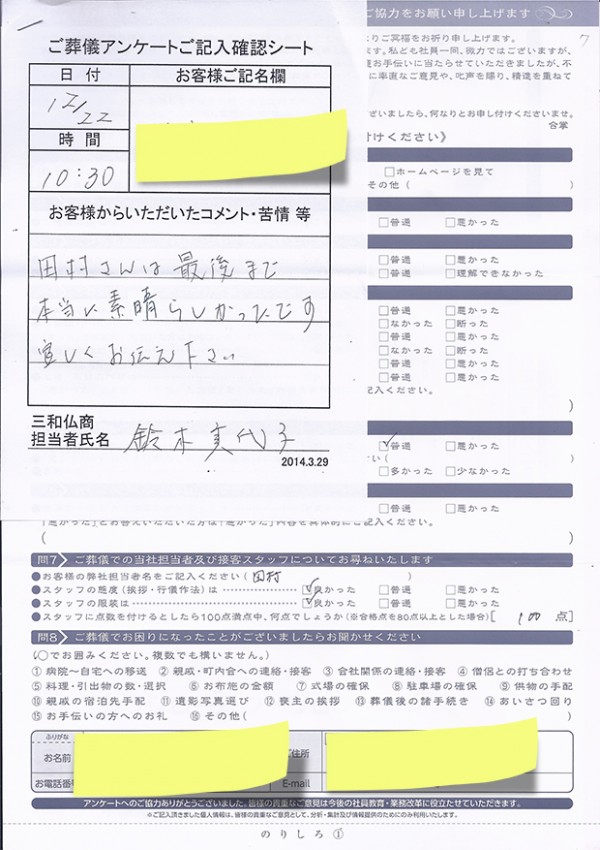 ご葬儀アンケートご記入確認シート
日付
お客様ご記名欄
12/22
時間
10:30
お客様からいただいたコメント・苦情 等
田村さんは最後まで
本当に素晴らしかったです
宜しくお伝え下さい
三和仏商
担当者氏名 鈴木美代子
2014.3.29
ご協力をお願い申し上げます
7
りご冥福をお祈り申し上げます。
ます。私ども社員一同、微力ではございますが、
お手伝いに当たらせていただきましたが、不
に率直なご意見や、叱声を賜り、精進を重ねて
ございましたら、何なりとお申し付けくださいませ。
合掌
付けください》
□ホームページを見て
その他(
□普通 □悪かった
□普通 □悪かった
□普通 □理解できなかった
□普通 □悪かった
□なかった □断った
□普通 □悪かった
□なかった □断った
□普通 □悪かった
□普通 □悪かった
記入ください。
)
☑普通 □悪かった
さい(
□多かった □少なかった
□普通 □悪かった
「悪かった」とお答えいただいた方は「悪かった」内容を具体的にご記入ください。
( )
問7 ご葬儀での当社担当者及び接客スタッフについてお尋ねいたします
●お客様の弊社担当者名をご記入ください( 田村 )
●スタッフの態度(挨拶・行儀作法)は ☑良かった □普通 □悪かった
●スタッフの服装は ☑良かった □普通 □悪かった
●スタッフに点数を付けるとしたら100点満点中、何点でしょうか(※合格点を80点以上とした場合)[ 100 点]
問8 ご葬儀でお困りになったことがございましたらお聞かせください
(○でお囲みください。複数でも構いません。)
①病院~自宅への移送 ②親戚・町内会への連絡・接客 ③会社関係の連絡・接客 ④僧侶との打ち合わせ
⑤料理・引出物の数・選択 ⑥お布施の金額 ⑦式場の確保 ⑧駐車場の確保 ⑨供物の手配
⑩親戚の宿泊先手配 ⑪遺影写真選び ⑫喪主の挨拶 ⑬葬儀後の諸手続き ⑭あいさつ回り
⑮お手伝いの方へのお礼 ⑯その他( )
ふりがな
お名前
ご住所
お電話番号
E-mail
アンケートへのご協力ありがとうございました。皆様の貴重なご意見は今後の社員教育・業務改革に役立たせていただきます。
※ご記入頂きました個人情報は、皆様の貴重なご意見として、分析・集計及び情報提供のためにのみ利用いたします。
のりしろ①